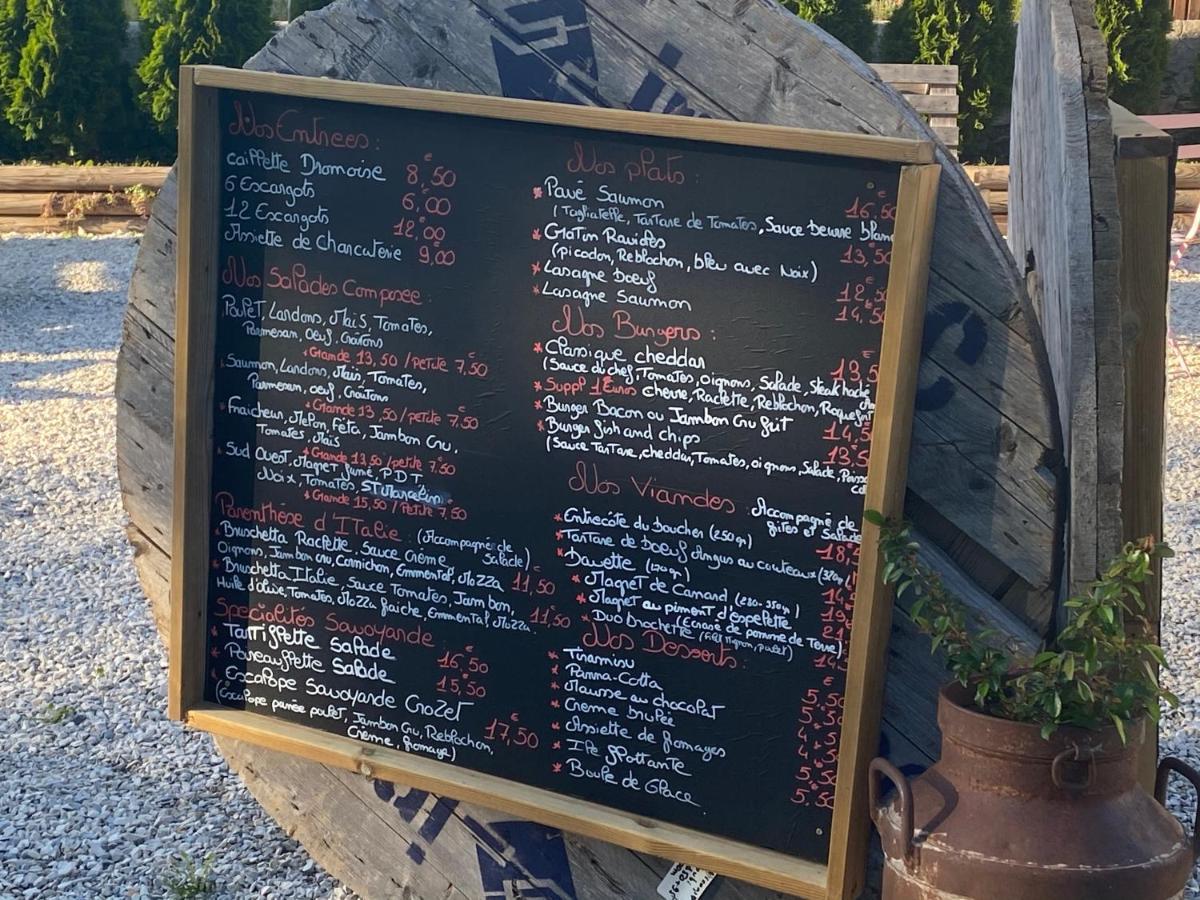 Nos Entrees :
caillette Dromoise 8,€50
6 Escargots 6,€00
12 Escargots 12,€00
Assiette de Charcuterie 9,€00
Nos Salades Composee :
Poulet, Lardons, Maïs, Tomates,
Parmesan, oeuf, Croûtons
* Grande 13,50 / petite 7,50
Saumon, Lardons, Maïs, Tomates,
Parmesan, oeuf, Croûtons
* Grande 13,50 / petite 7,50
Fraicheur, Melon, Féta, Jambon Cru,
Tomates, Maïs
* Grande 13,50 / petite 7,50
Sud Ouest, Magret fumé, P.D.T,
Noix, Tomates, ST Marcellin
* Grande 15,50 / Petite 7,50
Parenthèse d'Italie : (Accompagnée de Salade)
* Bruschetta Raclette, Sauce Crème
Oignons, Jambon cru, Cornichon, Emmental, Mozza 11,€50
* Bruschetta Italie, Sauce Tomates, Jambon,
Huile d'Olive, Tomates, Mozza fraiche, Emmental, Mozza. 11,€50
Specialités Savoyarde
* Tartiflette Salade 16,€50
* Poireauflette Salade 15,€50
* Escalope Savoyarde Crozet
(Escalope panée poulet, Jambon Cru, Reblochon, 17,€50
Crème, fromage)
Nos plats :
* Pavé Saumon 16,50
(Tagliatelle, Tartare de Tomates, Sauce beurre blanc
* Gratin Ravioles 13,50
(picodon, Reblochon, bleu avec Noix)
* Lasagne boeuf 12,50
* Lasagne Saumon 14,50
Nos Burgers :
* Classique cheddar 13,5
(Sauce du chef, Tomates, oignons, Salade, steak haché
* Suppl 1 Euros chèvre, Raclette, Reblochon, Roquefort
* Burger Bacon ou Jambon Cru grit 14,5
* Burger fish and chips 13,5
(Sauce Tartare, cheddar, Tomates, oignons, Salade, Poisson
Nos Viandes : Accompagné de
frites et Salade
* Entrecôte du boucher (250gr) 18,
* Tartare de boeuf Angus au couteaux
* Bavette
* Magret de Canard (280-350gr)
* Magret au piment d'espelette
(Ecrasé de pomme de Terre)
* Duo brochette (Filet Mignon, poulet)
Nos Desserts :
* Tiramisu
* Panna-Cotta 5,50
* Mousse au chocolat
* Creme Brulée
* Assiette de fromages
* Ile flottante 5,50
* Boule de Glace